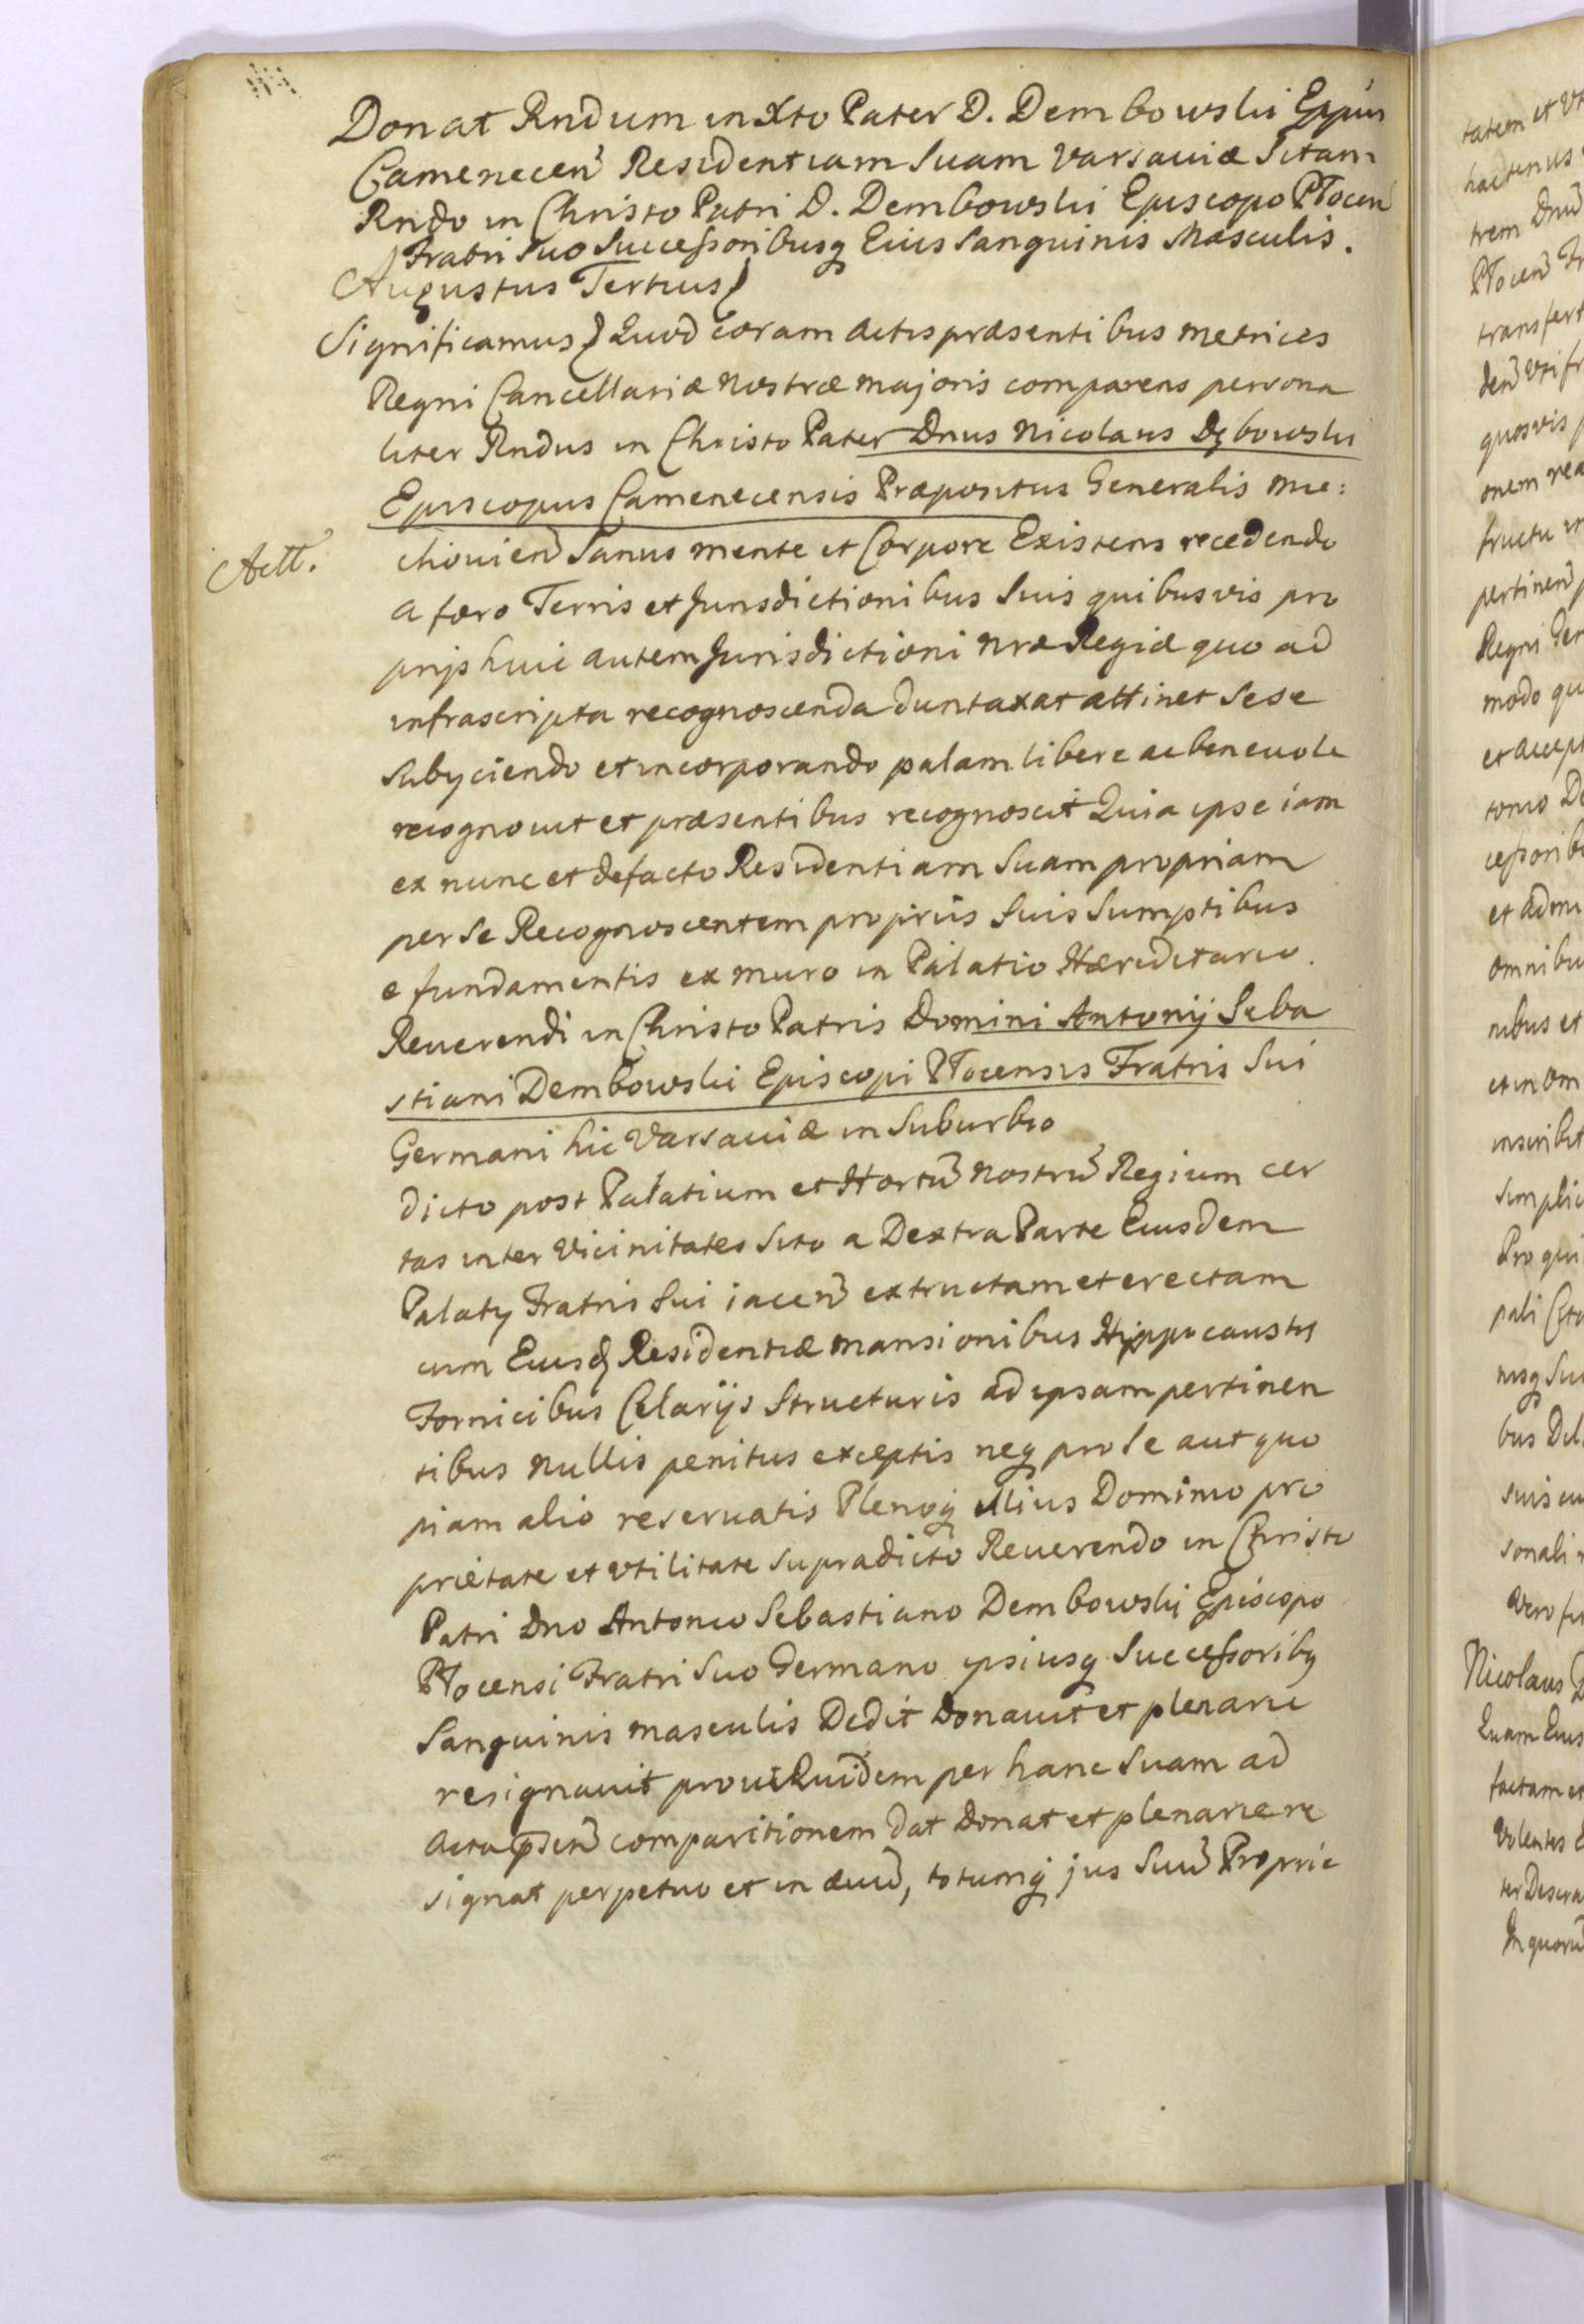 Donat Rndum in Xto Pater D. Dembowski Eppus
Camenecen̄ Residentiam Suam Varsaviæ Sitam
Rndo in Christo Patri D. Dembowski Episcopo Plocen̄
Fratri Suo Successoribusq Eius Sanguinis Masculis.
Augustus Tertius
Significamus Quod coram Actis præsentibus metrices
Regni Cancellariæ Nostræ majoris comparens persona
liter Rndus in Christo Pater Dnus Nicolaus Dębowski
Episcopus Camenecensis Præpositus Generalis Mie:
Actt.
chovien̄ Sanus mente et Corpore Existens recedendo
a foro Terris et Jurisdictionibus Suis quibusvis pro
prijs huic autem Jurisdictioni nræ Regiæ quo ad
infrascripta recognoscenda duntaxat attinet Sese
Subyciendo et incorporando palam libere ac benevole
recognovit et præsentibus recognoscit Quia ipse iam
ex nunc et defacto Residentiam Suam propriam
per Se Recognoscentem proprijs Suis Sumptibus
e fundamentis ex muro in Palatio Hæreditario.
Reverendi in Christo Patris Domini Antonij Seba
stiani Dembowski Episcopi Plocensis Fratris Sui
Germani hic Varsaviæ in Suburbio
dicto post Palatium et Hortū nostrū Regium cer
tas inter Vicinitates Sito a Dextra Parte Eiusdem
Palaty Fratris Sui iacen̄ extructam et erectam
cum Eiusd Residentiæ mansionibus Hippocaustis
Fornicibus Celarijs Structuris ad ipsam pertinen
tibus nullis penitus exceptis neq pro Se aut quo
piam alio reservatis Plenoq illius Dominio pro
prietate et utilitate supradicto Reverendo in Christo
Patri Dno Antonio Sebastiano Dembowski Episcopo
Plocensi Fratri Suo Germano ipsiusq Successoribq
Sanguinis masculis Dedit Donavit et plenarie
resignavit prout Quidem per hanc Suam ad
Acta p̄sen̄ comparitionem Dat Donat et plenarie re
signat perpetuo et in ævū, totumq jus Suū Proprie
tatem et
hactenus
trem Dnū
Plocen̄ Fr
transfert
quosvis
onem rea
fructu in
pertinen̄
Regni Gen
modo qu
et accept
tonio De
cessorib
et admi
omnibu
nibus et
et in om
inscribit
simplic
Pro qui
pali
nisq Suc
bus
suis
sonali
vero
Nicolaus D
Quam Eius
factam et
Volentes
ter
In quorū